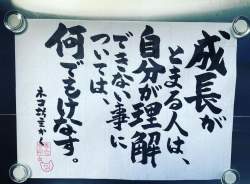 成長が
とまる人は、
自分が理解
できない事に
ついては、
何でもけなす。
ネコ坊主かく